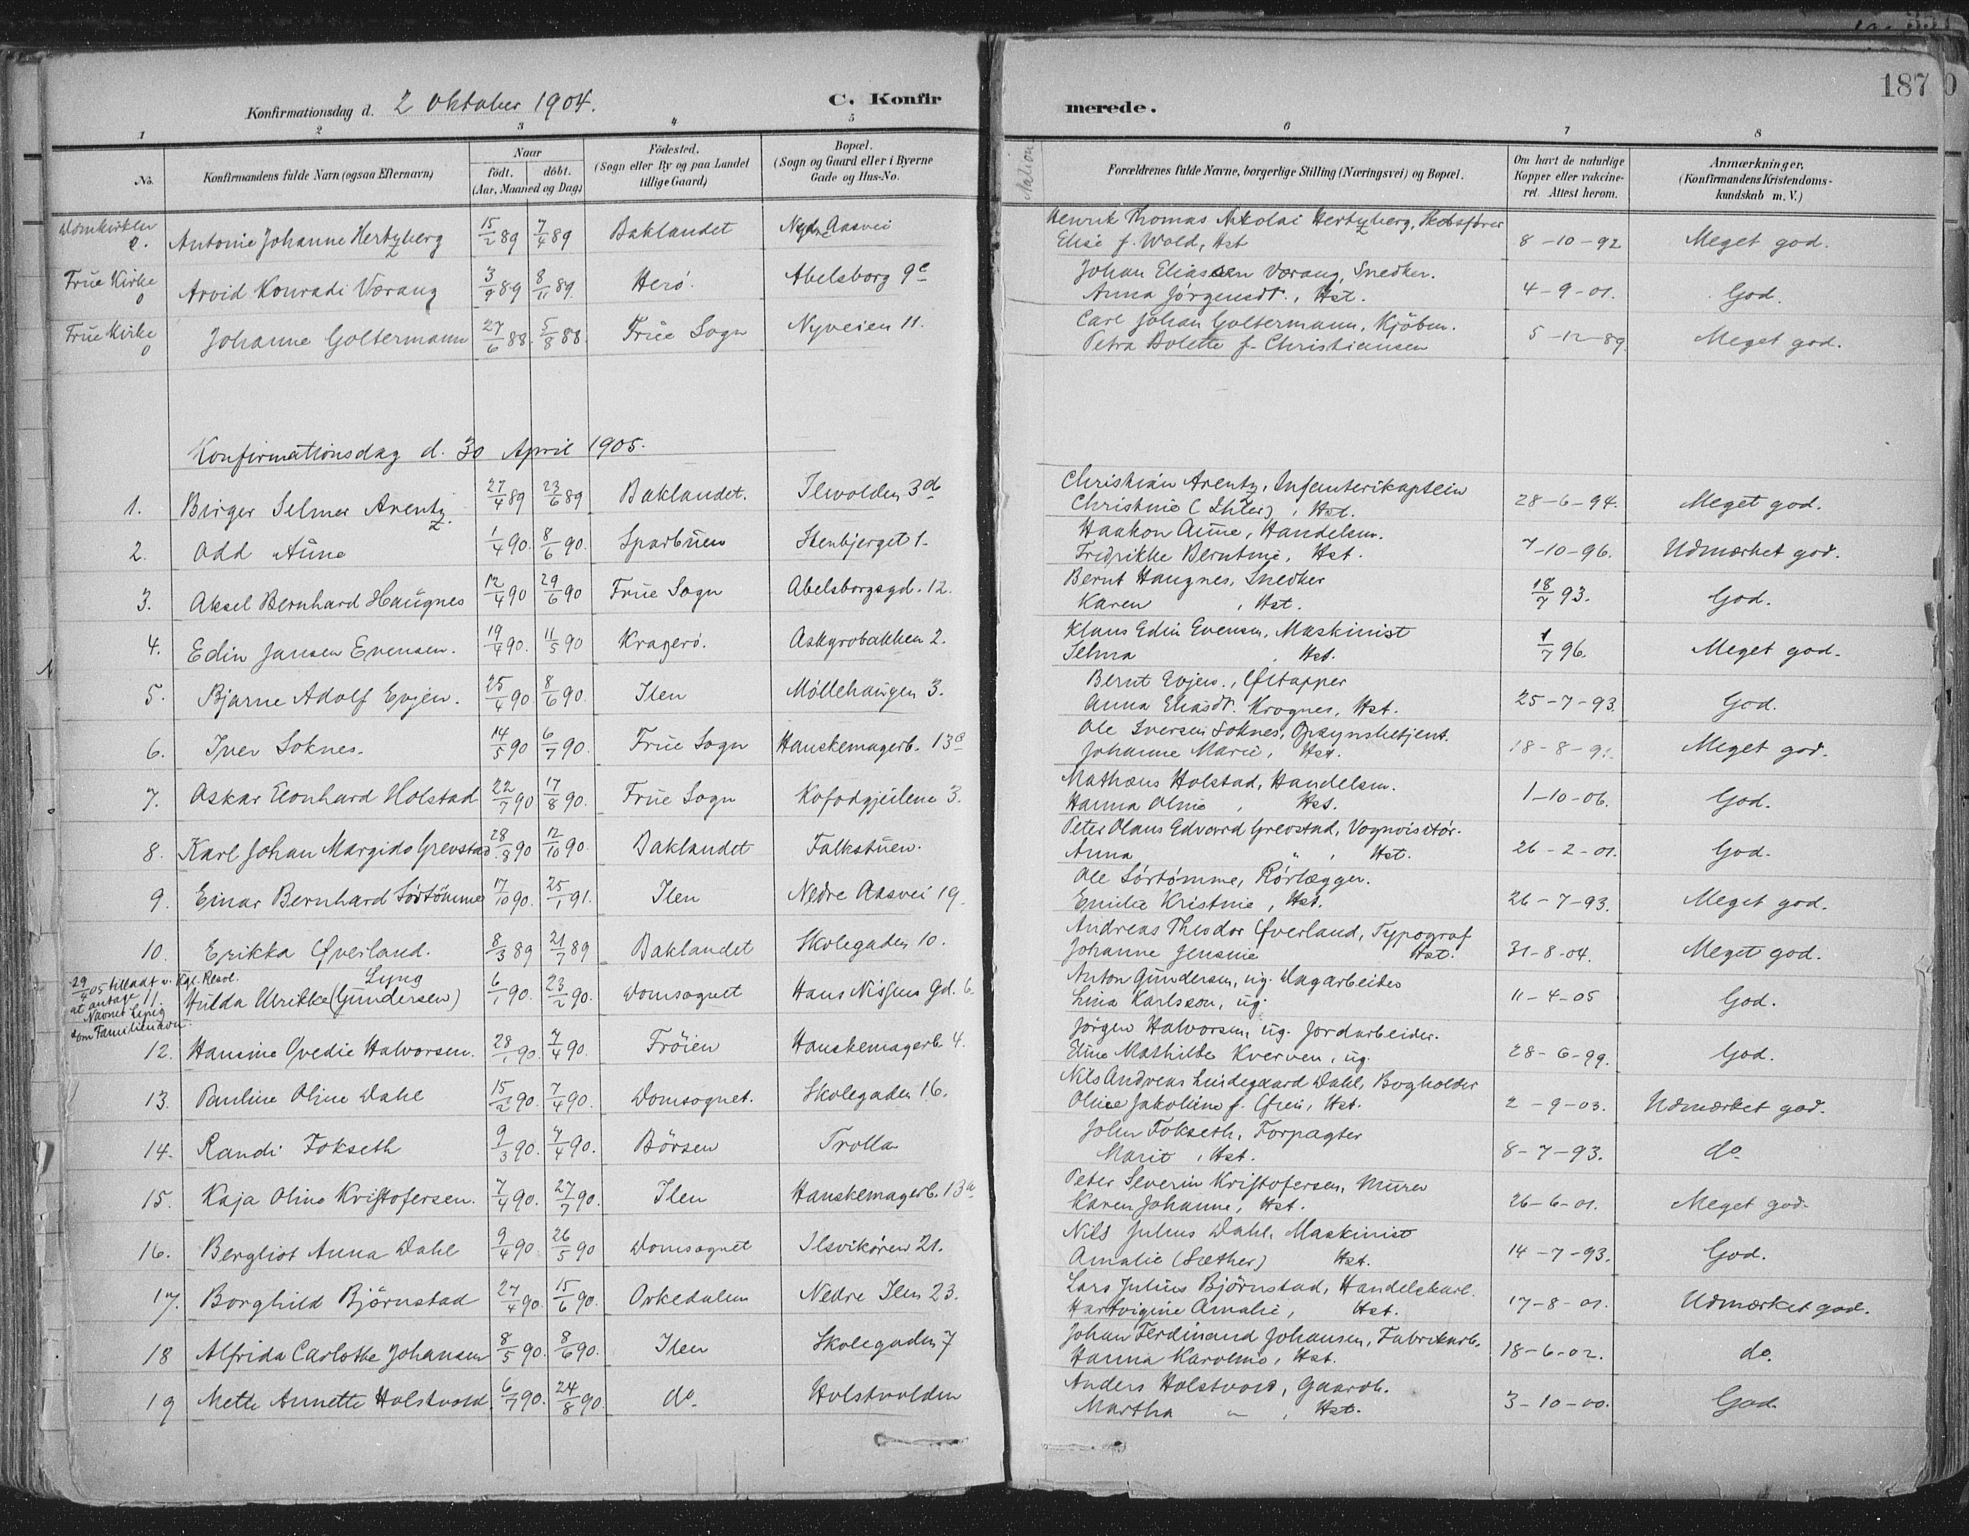 187
Konfirmationsdag d. 2 Oktober 1904. C. Konfirmerede.
1 2 3 4 5 6 7 8
No. Konfirmandens fulde Navn (ogsaa Efternavn) Naar født. døbt. (Aar, Maaned og Dag) Födested. (Sogn eller By og paa Landet tillige Gaard) Bopæl. (Sogn og Gaard eller i Byerne Gade og Hus-No. Forældrenes fulde Navne, borgerlige Stilling (Næringsvei) og Bopæl. Om havt de naturlige Kopper eller vakcineret. Attest herom. Anmærkninger. (Konfirmandens Kristendomskundskab m. V.)
Domkirken Antonie Johanne Hertzberg 15/2 89 7/4 89 Baklandet Nedre Aasvei Henrik Thomas Nikolai Hertzberg,
Elise f. Wold, Hst 8-10-92 Meget god.
Frue Kirke 0 Arvid Konradi Værang 3/9 89 8/11 89. Herö Abelsborg 9c Johan Eliassen Værang, Snedker.
Anna Jörgensdt., Hst. 4-9-01. God.
Frue Kirke 0 Johanne Goltermann 27/6 88. 5/8 88. Frue Sogn Nyveien 11. Carl Johan Goltermann, Kjöbm.
Petra Bolette f. Christiansen 5-12-89. Meget god.
Konfirmationsdag d. 30 April 1905.
1. Birger Selmer Arentz. 27/4 89 23/6 89 Baklandet. Ilevolden 3 Christian Arentz, Infanterikaptein
Christine , Hst. 28-6-94. Meget god.
2. Odd Aune 1/4 90. 8/6 90. Sparbuen Stenbjerget 1. Haakon Aune, Handelsm.
Fredrikke Berntine, Hst. 7-10-96. Udmærket god.
3. Aksel Bernhard Haugnes 12/4 90 29/6 90 Frue Sogn Abelsborgsgd. 12. Bernt Haugnes, Snedker
Karen , Hst. 18/7 93. God.
4. Edin Jansen Evensen. 19/4 90. 11/5 90 Kragerö. Askgrobakken 2. Klaus Edin Evensen, Maskinist
Selma , Hst. 1/7 96. Meget god.
5. Bjarne Adolf Evjen. 25/4 90. 8/6 90. Ilen Möllehaugen 3. Bernt Evjen, Öltapper
Anna Eliasdt. Krognes, Hst. 25-7-93. God.
6. Iver Soknes. 14/5 90 6/7 90. Frue Sogn Hanskemagerb. 13a Ole Iversen Soknes, Opsynsbetjent.
Johanne Marie, Hst. 18-8-91. Meget god.
7. Oskar Leonhard Holstad 22/7 90 17/8 90. Frue Sogn Kofodgjeilene 3. Mathæus Holstad, Handelsm.
Hanna Oline , Hst. 1-10-06. God.
8. Karl Johan Margido Grevstad. 28/8 90 12/10 90. Baklandet Falkstuen. Peter Olaus Edvard Grevstad, Vognvisitör.
Anna " , Hst. 26-2-01. God.
9. Einar Bernhard Sörtömme 17/10 90. 25/1 91. Ilen Nedre Aasvei 19. Ole Sörtömme, Rörlægger.
Emilie Kristine, Hst. 26-7-93. Meget god.
10. Erikka Øverland. 8/3 89 21/7 89 Baklandet Skolegaden 10. Andreas Theodor Øverland, Typograf
Johanne Jensine Hst. 31-8-04. Meget god.
29/4 05 tilladt v. Kgl. Resol. at antage Navnet Lyng som Familienavn.
11. Hulda Ulrikke (Gundersen) Lyng 6/1 90. 23/2 90. Domsognet Hans Nissens Gd. 6. Anton Gundersen, ug. Dagarbeider
Lina Karlsson, ug. 11-4-05 God.
12. Hansine Ovedie Halvorsen. 28/1 90. 7/4 90. Fröien Hanskemagerb. 4. Jörgen Halvorsen, ug. Jordarbeider.
Eline Mathilde Kverven, ug. 28-6-99. God.
13. Pauline Oline Dahl 15/2 90. 7/4 90. Domsognet. Skolegaden 16. Nils Andreas Lindegaard Dahl, Bogholder
Oline Jakobine f. Øien, Hst. 2-9-03. Udmærket god.
14. Randi Fokseth 9/3 90. 7/4 90. Börsen Trolla John Fokseth, Forpagter
Marit , Hst. 8-7-93. do.
15. Kaja Oline Kristofersen. 7/4 90. 27/7 90. Ilen Hanskemagerb. 13a Peter Severin Kristofersen, Murer
Karen Johanne, Hst. 26-6-01. Meget god.
16. Bergliot Anna Dahl 9/4 90. 26/5 90 Domsognet Ilsvikören 21. Nils Julius Dahl, Maskinist
Amalie (Sæther) Hst. 14-7-93. God.
17. Borghild Björnstad 27/4 90. 15/6 90. Orkedalen Nedre Ilen 23. Lars Julius Björnstad, Handelskarl.
Hartvigine Amalie, Hst. 17-8-01. Udmærket god.
18 Alfrida Carlotte Johansen 8/5 90. 8/6 90. Ilen Skolegaden 7 Johan Ferdinand Johansen, Fabrikarb.
Hanna Karoline, Hst. 18-6-02. do.
19 Mette Annette Holstvold 6/7 90. 24/8 90. do. Holstvolden Anders Holstvold, Gaardb.
Martha " , Hst. 3-10-00. God.